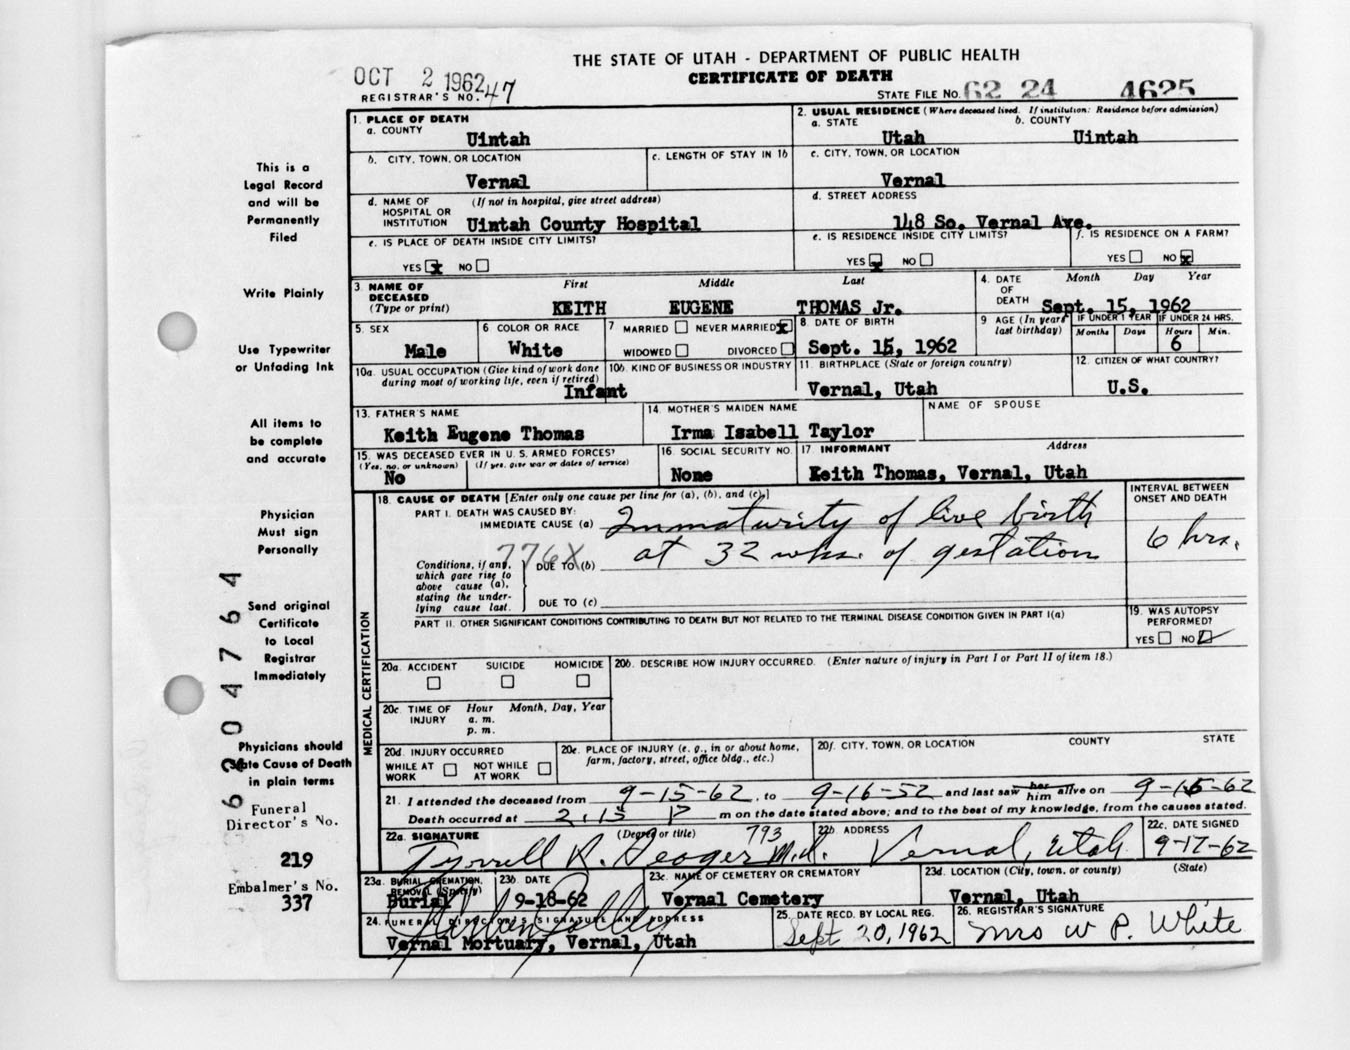 THE STATE OF UTAH - DEPARTMENT OF PUBLIC HEALTH
CERTIFICATE OF DEATH
OCT 2 1962
REGISTRAR'S NO. 47
STATE FILE NO. 62 24 4625
1. PLACE OF DEATH
a. COUNTY
Uintah
2. USUAL RESIDENCE (Where deceased lived. If institution: Residence before admission)
a. STATE b. COUNTY
Utah Uintah
b. CITY, TOWN, OR LOCATION
Vernal
c. LENGTH OF STAY IN 1b
c. CITY, TOWN, OR LOCATION
Vernal
d. NAME OF HOSPITAL OR INSTITUTION (If not in hospital, give street address)
Uintah County Hospital
d. STREET ADDRESS
148 So. Vernal Ave.
e. IS PLACE OF DEATH INSIDE CITY LIMITS?
YES x NO
e. IS RESIDENCE INSIDE CITY LIMITS?
YES x NO
f. IS RESIDENCE ON A FARM?
YES NO x
3. NAME OF DECEASED (Type or print)
First Middle Last
KEITH EUGENE THOMAS Jr.
4. DATE OF DEATH Month Day Year
Sept. 15, 1962
5. SEX
Male
6 COLOR OR RACE
White
7 MARRIED NEVER MARRIED x
WIDOWED DIVORCED
8. DATE OF BIRTH
Sept. 15, 1962
9 AGE (In years last birthday)
IF UNDER 1 YEAR IF UNDER 24 HRS.
Months Days Hours Min.
6
10a. USUAL OCCUPATION (Give kind of work done during most of working life, even if retired)
Infant
10b. KIND OF BUSINESS OR INDUSTRY
11. BIRTHPLACE (State or foreign country)
Vernal, Utah
12. CITIZEN OF WHAT COUNTRY?
U.S.
13. FATHER'S NAME
Keith Eugene Thomas
14. MOTHER'S MAIDEN NAME
Irma Isabell Taylor
NAME OF SPOUSE
15. WAS DECEASED EVER IN U.S. ARMED FORCES?
(Yes, no, or unknown) (If yes, give war or dates of service)
No
16. SOCIAL SECURITY NO.
None
17 INFORMANT Address
Keith Thomas, Vernal, Utah
18. CAUSE OF DEATH [Enter only one cause per line for (a), (b), and (c).]
INTERVAL BETWEEN ONSET AND DEATH
PART I. DEATH WAS CAUSED BY:
IMMEDIATE CAUSE (a) Immaturity of live birth
776X
DUE TO (b) at 32 wks. of gestation
6 hrs.
Conditions, if any, which gave rise to above cause (a), stating the underlying cause last.
DUE TO (c)
PART II. OTHER SIGNIFICANT CONDITIONS CONTRIBUTING TO DEATH BUT NOT RELATED TO THE TERMINAL DISEASE CONDITION GIVEN IN PART I(a)
19. WAS AUTOPSY PERFORMED?
YES NO
20a. ACCIDENT SUICIDE HOMICIDE
20b. DESCRIBE HOW INJURY OCCURRED. (Enter nature of injury in Part I or Part II of item 18.)
20c. TIME OF INJURY Hour Month, Day, Year
a. m.
p. m.
20d. INJURY OCCURRED
WHILE AT WORK NOT WHILE AT WORK
20e. PLACE OF INJURY (e. g., in or about home, farm, factory, street, office bldg., etc.)
20f. CITY, TOWN, OR LOCATION COUNTY STATE
21. I attended the deceased from 9-15-62, to 9-16-52 and last saw her him alive on 9-15-62
Death occurred at 2:15 P m on the date stated above; and to the best of my knowledge, from the causes stated.
22a. SIGNATURE (Degree or title) 793
Tyrrell R. Seager M.d.
22b. ADDRESS
Vernal, Utah
22c. DATE SIGNED
9-17-62
23a. BURIAL, CREMATION, REMOVAL (Specify)
Burial
23b. DATE
9-18-62
23c. NAME OF CEMETERY OR CREMATORY
Vernal Cemetery
23d. LOCATION (City, town, or county) (State)
Vernal, Utah
24. FUNERAL DIRECTOR'S SIGNATURE AND ADDRESS
Vernal Mortuary, Vernal, Utah
25. DATE RECD. BY LOCAL REG.
Sept 20, 1962
26. REGISTRAR'S SIGNATURE
Mrs W P. White
MEDICAL CERTIFICATION
This is a
Legal Record
and will be
Permanently
Filed
Write Plainly
Use Typewriter
or Unfading Ink
All items to
be complete
and accurate
Physician
Must sign
Personally
Send original
Certificate
to Local
Registrar
Immediately
Physicians should
State Cause of Death
in plain terms
Funeral
Director's No.
219
Embalmer's No.
337